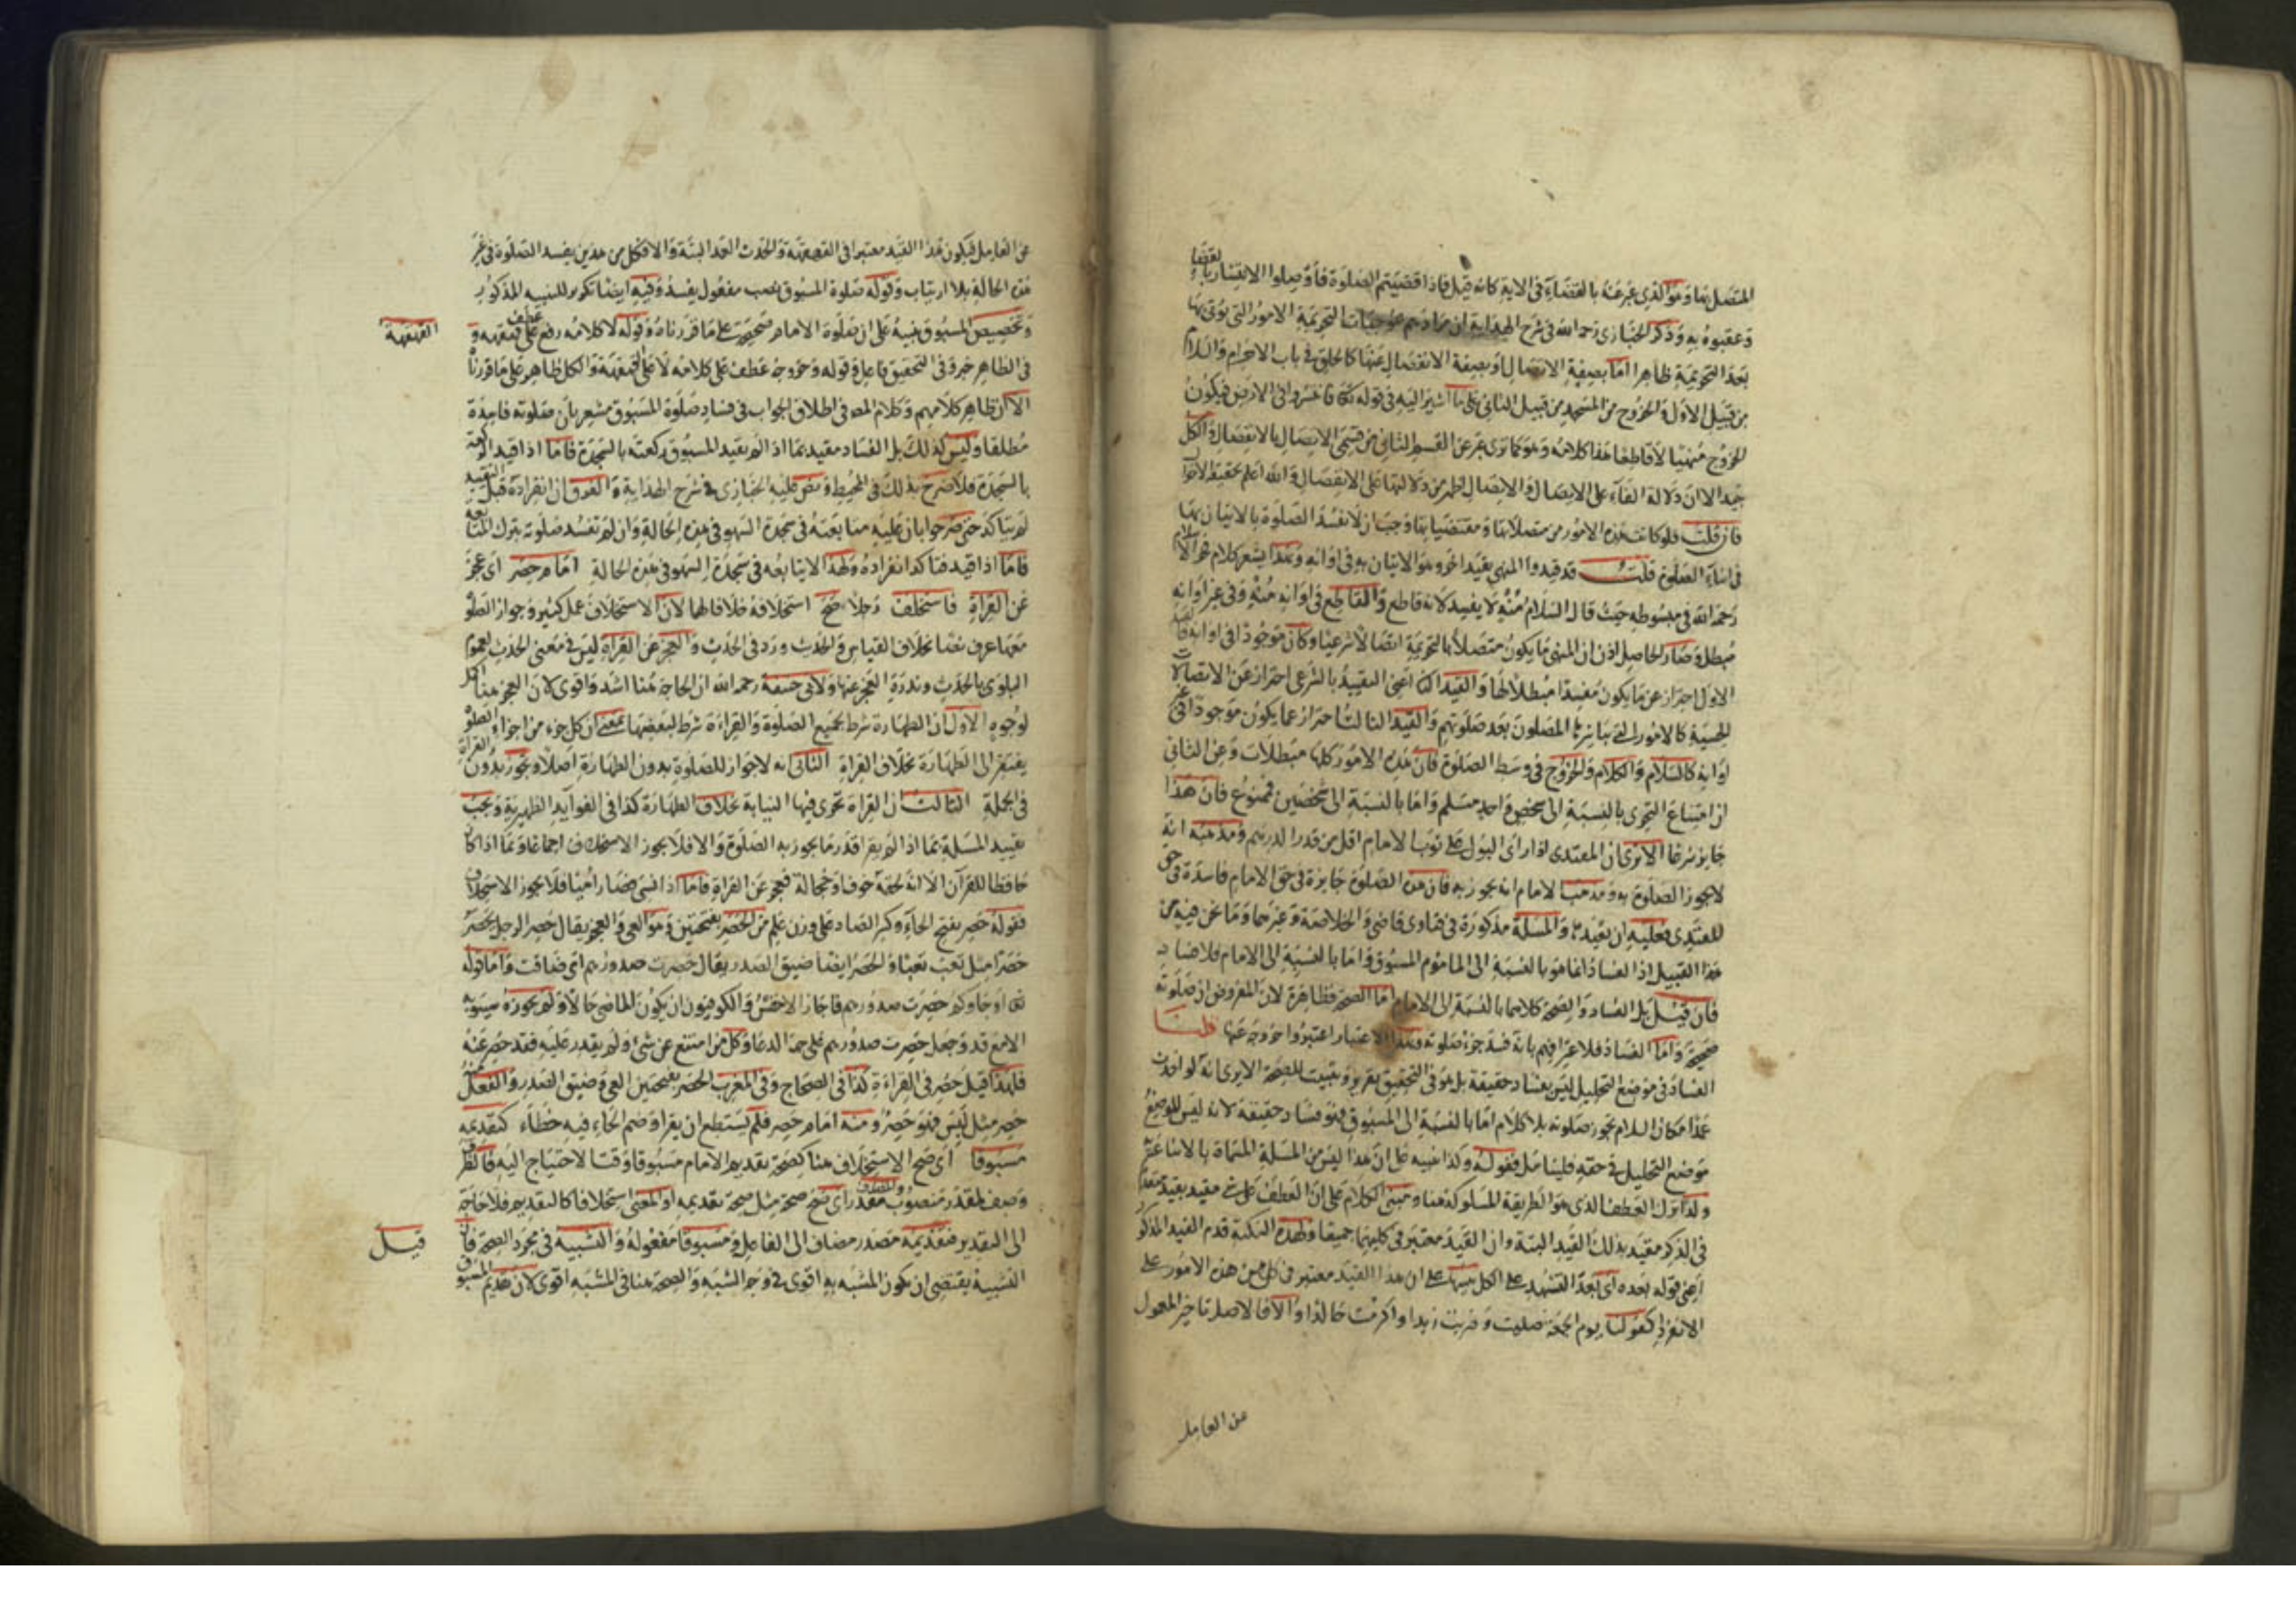 المتصل بها وهو الذي عبر عنه بالقضاء في الاية كانه قيل فاذا قضيتم الصلوة فأوصلوا الانتشار بانقضائها
وعقبوه به وذكر الخبازي رحمه الله في شرح الهداية ان مرادهم موجبات التحريمة الامور التي يؤتى بها
بعد التحريمة ظاهرا اما بصفة الاتصال او بصفة الانفصال عنها كالحلق في باب الاحرام والسلام
من قبيل الاول والخروج من المسجد من قبيل الثاني على ما اشير اليه في قوله تعالى فانتشروا في الارض فيكون
الخروج منهيا لا قاطعا هذا كلامه وهو كما ترى عبر عن القسم الثاني من قسمي الاتصال بالانفصال والكل
جيد الا ان دلالة الفاء على الاتصال والاتصال اظهر من دلالتها على الانفصال والله اعلم بحقيقة الاحوال
فان قلت فلو كانت هذه الامور من متصلاتها ومقتضياتها وجب ان لا تفسد الصلوة بالاتيان بها
في اثناء الصلوة قلت قد قيدوا المنهي بقيد اخر وهو الاتيان به في اوانه وبهذا يشعر كلام فخر الاسلام
رحمه الله في مبسوطه حيث قال السلام منه لا يفسد لانه قاطع والقاطع في اوانه منه وفي غير اوانه
مبطل وصار الحاصل اذن ان المنهي ما يكون متصلا بالتحريمة اتصالا شرعيا وكان موجودا في اوانه فالقيد
الاول احتراز عن ما يكون مفسدا مبطلا لها والقيد الثاني اعني التقييد بالشرعي احتراز عن الاتصالات
الحسية كالامور التي يباشرها المصلون بعد صلوتهم والقيد الثالث احتراز عما يكون موجودا في غير
اوانه كالسلام والكلام والخروج في وسط الصلوة فان هذه الامور كلها مبطلات وعن الثاني
ان امتناع التجزى بالنسبة الى شخص واحد مسلم واما بالنسبة الى شخصين فممنوع فان هذا
جايز شرعا الا ترى ان المقتدى اذا راى البول على ثوب الامام اقل من قدر الدرهم ومذهبه انه
لا يجوز الصلوة به ومذهب الامام انه يجوز به فان هذه الصلوة جايزة في حق الامام فاسدة في حق
المقتدى فعليه ان يعيدها والمسلة مذكورة في فتاوى قاضي والخلاصة وغيرهما وما نحن فيه من
هذا القبيل اذ الفساد انما هو بالنسبة الى الماموم المسبوق واما بالنسبة الى الامام فلا فساد به
فان قيل بل الفساد والصحة كلاهما بالنسبة الى الامام اما الصحة فظاهرة لان المفروض ان صلوته
صحيحة واما الفساد فلاعترافهم بانه فسد جزء صلوته وبهذا الاعتبار اعتبروا خروجه عنها قلنا
الفساد في موضع التحليل ليس بفساد حقيقة بل هو في التحقيق تقرير وتثبيت للصحة الا يرى انه لو احدث
عمدا مكان السلام تجوز صلوته بلا كلام اما بالنسبة الى المسبوق فهو فساد حقيقة لانه ليس الموضع
موضع التحليل في حقه فليتامل فقوله وكذا تنبيه على ان هذا ليس من المسلة المسماة بالاثنا عشرية
ولذا ترك العطف الذي هو الطريقة المسلوكة هنا ومبنى الكلام على ان العطف على مقيد بقيد مقدم
في الذكر مقيد بذلك القيد البتة وان القيد معتبر في كليهما جميعا ولهذه النكتة قدم القيد المذكور
اعني قوله بعده اى بعد التشهد على الكل تنبيها على ان هذا القيد معتبر في كل من هذه الامور على
الانفراد كقولنا يوم الجمعة صليت وضربت زيدا واكرمت خالدا والا فالاصل تاخير المعمول
عن العامل
عن العامل فيكون هذا القيد معتبرا في القهقهة والحدث العمد البتة والا فكل من هذين يفسد الصلوة في غير
هذه الحالة بلا ارتياب وقوله صلوة المسبوق نصب مفعول يفسد وفيه ايضا تكرير للتنبيه المذكور
وتخصيص المسبوق تنبيه على ان صلوة الامام صحيحة على ما قررناه وقوله لا كلامه رفع عطف على قهقهة و
القهقهة
في الظاهر خبر وفي التحقيق فاعل وقوله وخروجه عطف على كلامه لا على القهقهة والكل ظاهر على ما قررنا
الا ان ظاهر كلامهم وكلام المص في اطلاق الجواب في فساد صلوة المسبوق مشعر بان صلوته فاسدة
مطلقا وليس كذلك بل الفساد مقيد بما اذا لم يقيد المسبوق ركعته بالسجدة فاما اذا قيد الركعة
بالسجدة فلا صرح بذلك في المحيط ونص عليه الخبازي في شرح الهداية والفرق ان انفراده قبل التقييد
لم يتاكد حتى صرحوا بان عليه متابعته في سجدة السهو في هذه الحالة وان لم تفسد صلوته بترك المتابعة
فاما اذا قيد فتاكد انفراده ولهذا لا يتابعه في سجدة السهو في هذه الحالة امام حصر اى عجز
عن القراة فاستخلف رجلا صح استخلافه خلافا لهما لان الاستخلاف عمل كثير وجواز الصلوة
معها عرف نصا بخلاف القياس والحديث ورد في الحدث والعجز عن القراة ليس في معنى الحدث لعموم
البلوى بالحدث وندرة العجز عنها ولابي حنيفة رحمه الله ان الحاجة هنا اشد واقوى لان العجز هنا اكثر
لوجوه الاول ان الطهارة شرط لجميع الصلوة والقراءة شرط لبعضها بمعنى ان كل جزء من اجزاء الصلوة
يفتقر الى الطهارة بخلاف القراة الثاني انه لا جواز للصلوة بدون الطهارة اصلا وتجوز بدون القراة
في الجملة الثالث ان القراة تجرى فيها النيابة بخلاف الطهارة كذا في الفوايد الظهيرية ويجب
تقييد المسلة بما اذا لم يقرا قدر ما يجوز به الصلوة والا فلا يجوز الاستخلاف اجماعا وبما اذا كان
حافظا للقرآن الا انه لحقه خوف او خجالة فعجز عن القراة فاما اذا نسي فصار اميا فلا يجوز الاستخلاف
فقوله حصر بفتح الحاء وكسر الصاد على وزن علم من الحصر بفتحتين وهو العي والعجز يقال حصر الرجل يحصر
حصرا مثل تعب تعبا والحصر ايضا ضيق الصدر يقال حصرت صدورهم اى ضاقت واما قوله
تعالى او جاوكم حصرت صدورهم فاجاز الاخفش والكوفيون ان يكون الماضي حالا ولم يجوزه سيبويه
الا مع قد وجعل حصرت صدورهم على جهة الدعا وكل من امتنع عن شئ ولم يقدر عليه فقد حصر عنه
فلهذا قيل حصر في القراءة كذا في الصحاح وفي المغرب الحصر بفتحتين العي وضيق الصدر والفعل منه
حصر مثل لبس فهو حصر ومنه امام حصر فلم يستطع ان يقرا وضم الحاء فيه خطاء كتقديمه
مسبوقا اى صح الاستخلاف هنا كصحة تقديم الامام مسبوقا وقت الاحتياج اليه فالظرف
وصف لمقدر منصوب مقدر اى صح صحة مثل صحة تقديمه او المعنى استخلافا كالتقديم فلا حاجة
الى التقدير فتقديمه مصدر مضاف الى الفاعل ومسبوقا مفعوله والتشبيه في مجرد الصحة فان
قيل
التشبيه يقتضي ان يكون المشبه به اقوى في وجه الشبه والصحة هنا في المشبه اقوى لان تقديم المسبوق